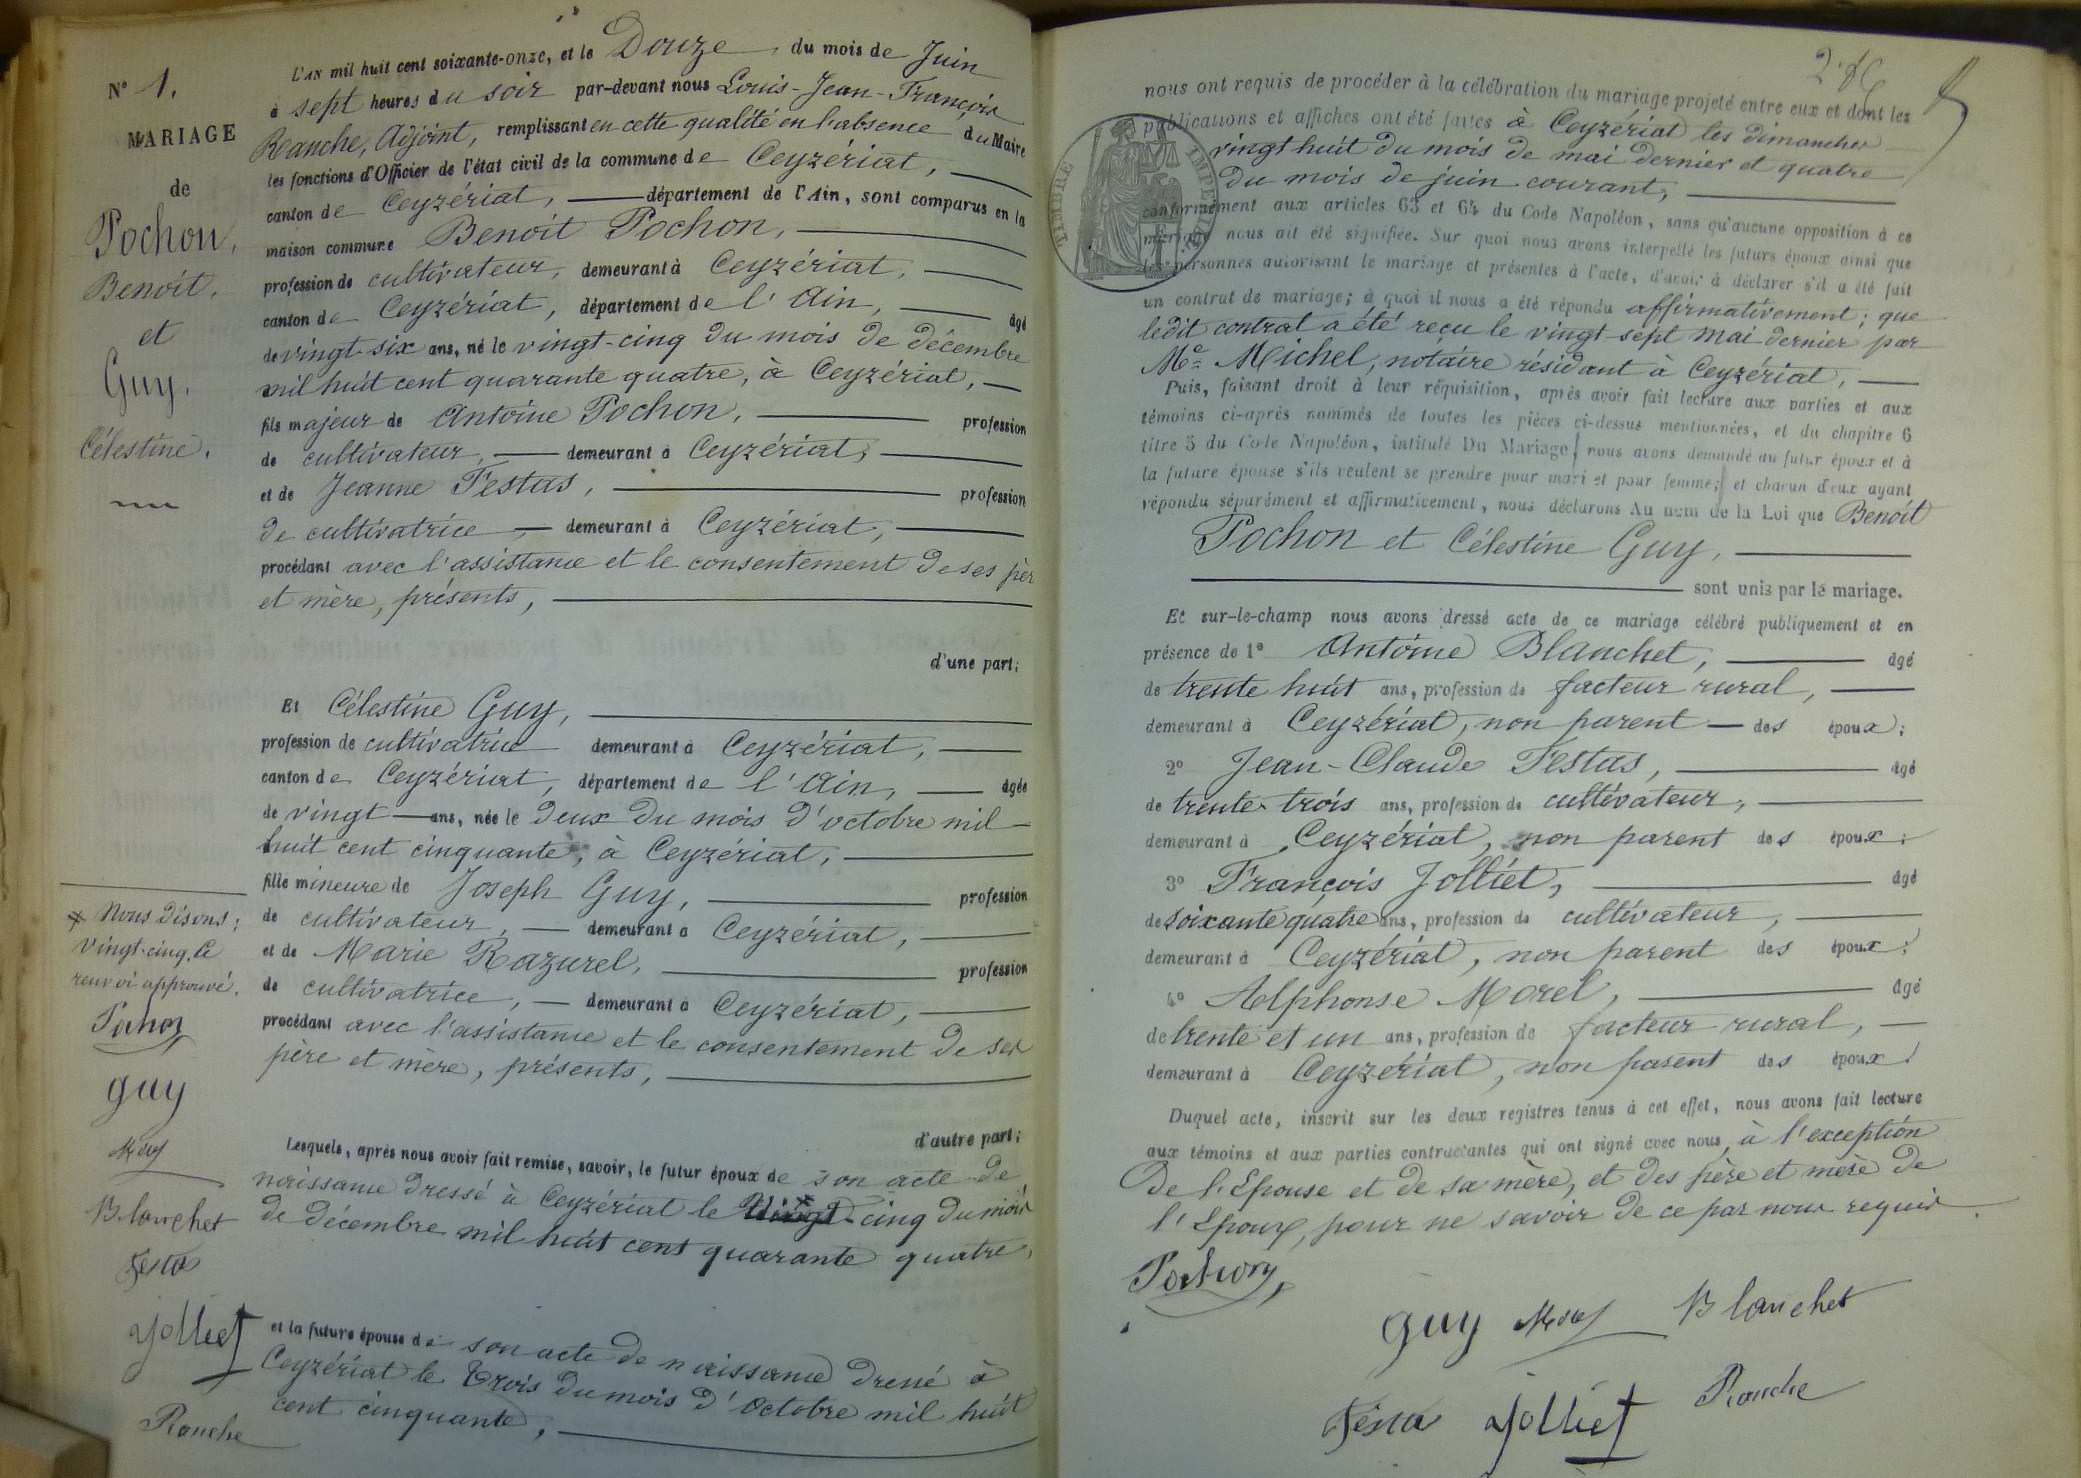 N° 1.
MARIAGE
de
Pochon,
Benoit.
et
Guy.
Célestine.
L'AN mil huit cent soixante-onze, et le Douze du mois de Juin
à sept heures du soir par-devant nous Louis-Jean-François
Ranche, Adjoint, remplissant en cette qualité en l'absence du Maire
les fonctions d'Officier de l'état civil de la commune de Ceyzériat,
canton de Ceyzériat, département de l'Ain, sont comparus en la
maison commune Benoit Pochon,
profession de cultivateur, demeurant à Ceyzériat,
canton de Ceyzériat, département de l'Ain, âgé
de vingt-six ans, né le vingt-cinq du mois de décembre
mil huit cent quarante quatre, à Ceyzériat,
fils majeur de Antoine Pochon, profession
de cultivateur, demeurant à Ceyzériat,
et de Jeanne Testas, profession
de cultivatrice demeurant à Ceyzériat,
procédant avec l'assistance et le consentement de ses pèr
et mère, présents,
d'une part;
Et Célestine Guy,
profession de cultivatrice demeurant à Ceyzériat,
canton de Ceyzériat, département de l'Ain, âgée
de vingt ans, née le deux du mois d'octobre mil
huit cent cinquante, à Ceyzériat,
fille mineure de Joseph Guy, profession
de cultivateur, demeurant à Ceyzériat,
et de Marie Razurel, profession
de cultivatrice, demeurant à Ceyzériat,
procédant avec l'assistance et le consentement de ses
père et mère, présents,
d'autre part;
Lesquels, après nous avoir fait remise, savoir, le futur époux de son acte de
naissance dressé à Ceyzériat le vingt-cinq du mois
de décembre mil huit cent quarante quatre,
et la future épouse de son acte de naissance dressé à
Ceyzériat le trois du mois d'Octobre mil huit
cent cinquante,
Nous disons:
Vingt-cinq. Ce
renvoi approuvé.
Pochon
guy
Morel
Blanchet
Testa
Jolliet
Ranche
nous ont requis de procéder à la célébration du mariage projeté entre eux et dont les
publications et affiches ont été faites à Ceyzériat les dimanches
vingt huit du mois de mai dernier et quatre
du mois de juin courant,
conformément aux articles 63 et 64 du Code Napoléon, sans qu'aucune opposition à ce
mariage nous ait été signifiée. Sur quoi nous avons interpellé les futurs époux ainsi que
les personnes autorisant le mariage et présentes à l'acte, d'avoir à déclarer s'il a été fait
un contrat de mariage; à quoi il nous a été répondu affirmativement; que
ledit contrat a été reçu le vingt-sept Mai dernier par
Me Michel, notaire résidant à Ceyzériat,
Puis, faisant droit à leur réquisition, après avoir fait lecture aux parties et aux
témoins ci-après nommés de toutes les pièces ci-dessus mentionnées, et du chapitre 6
titre 5 du Code Napoléon, intitulé Du Mariage, nous avons demandé au futur époux et à
la future épouse s'ils veulent se prendre pour mari et pour femme; et chacun d'eux ayant
répondu séparément et affirmativement, nous déclarons Au nom de la Loi que Benoit
Pochon et Célestine Guy,
sont unis par le mariage.
Et sur-le-champ nous avons dressé acte de ce mariage célébré publiquement et en
présence de 1° Antoine Blanchet, âgé
de trente huit ans, profession de facteur rural,
demeurant à Ceyzériat, non parent des époux;
2° Jean-Claude Testas, âgé
de trente-trois ans, profession de cultivateur,
demeurant à Ceyzériat, non parent des époux;
3° François Jolliet, âgé
de soixante quatre ans, profession de cultivateur,
demeurant à Ceyzériat, non parent des époux;
4° Alphonse Morel, âgé
de trente et un ans, profession de facteur rural,
demeurant à Ceyzériat, non parent des époux
Duquel acte, inscrit sur les deux registres tenus à cet effet, nous avons fait lecture
aux témoins et aux parties contractantes qui ont signé avec nous, à l'exception
De l'Epouse et de sa mère, et des père et mère de
l'Epoux, pour ne savoir de ce par nous requis.
Pochon
guy Morel Blanchet
Testa Jolliet Ranche
TIMBRE IMPERIAL